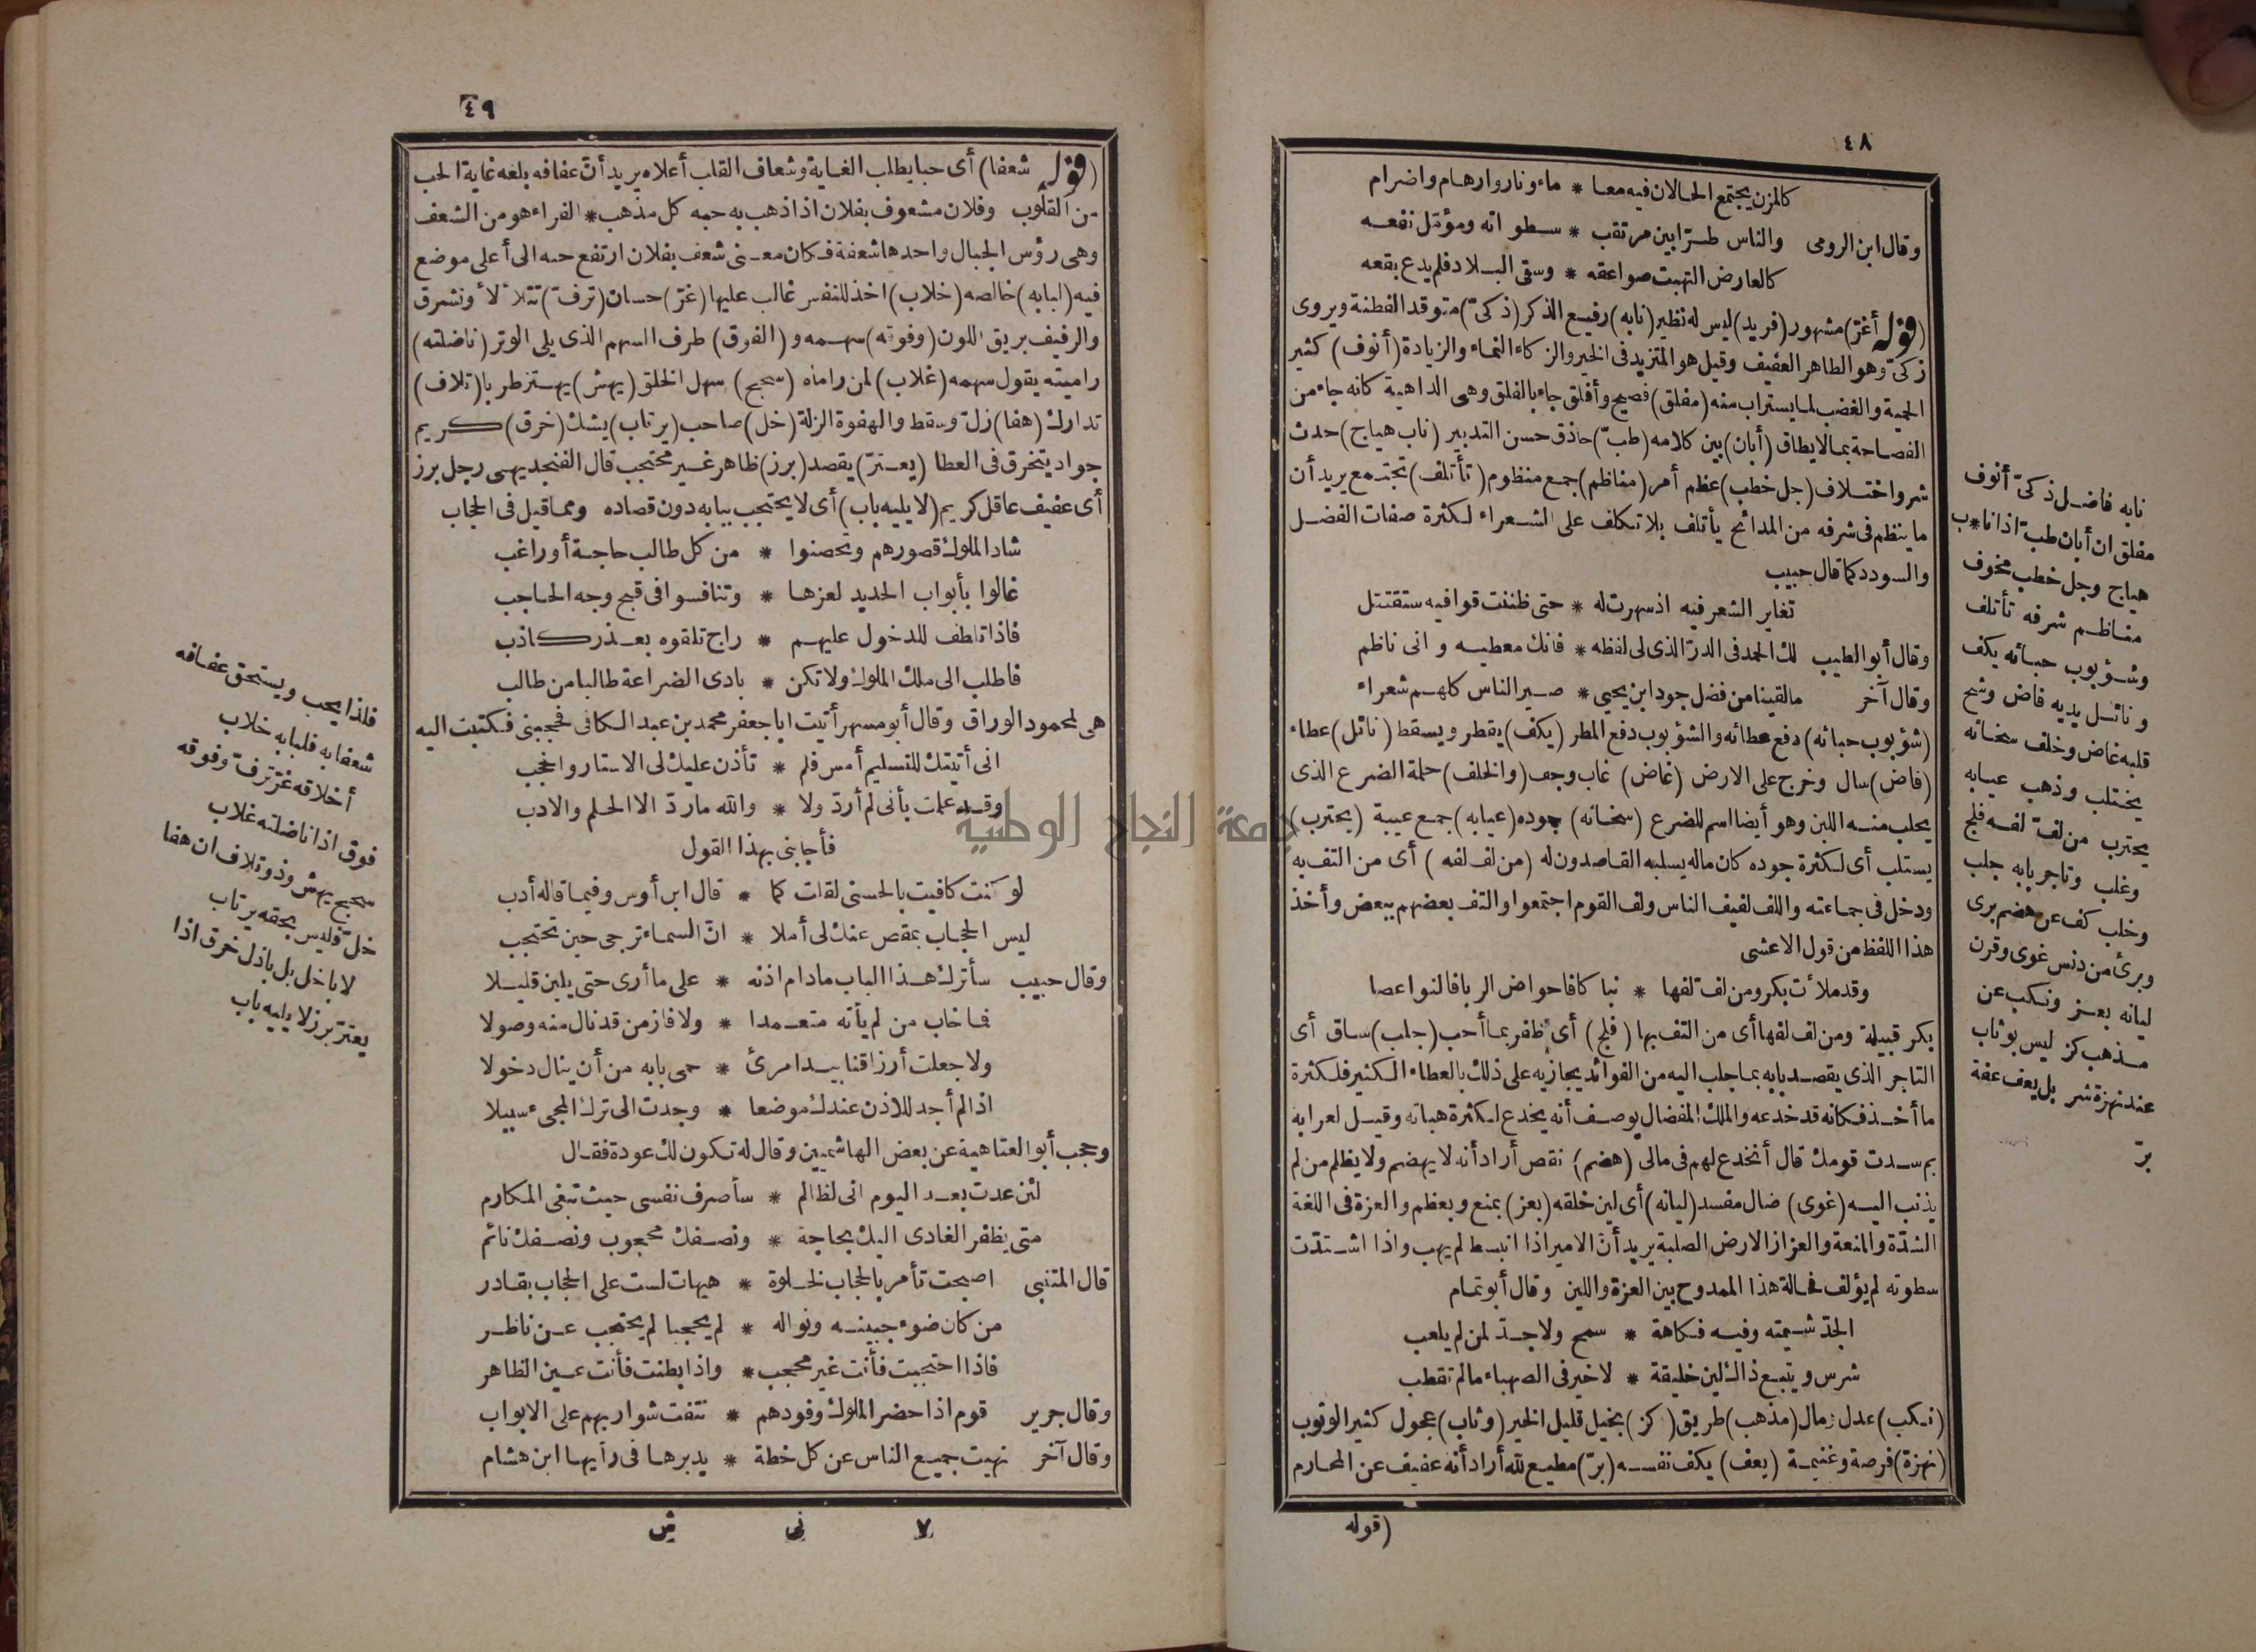 ٤٨
كالمزن يجتمع الحالان فيه معا * ماء ونار وارهام واضرام
وقال ابن الرومى والناس طرّا بين مرتقب * سطواته ومؤمّل نفعه
كالعارض التهبت صواعقه * وسقى البلاد فلم يدع بقعه
(قوله أغرّ) مشهور (فريد) ليس له نظير (نابه) رفيع الذكر (ذكىّ) متوقد الفطنة ويروى
زكىّ وهو الطاهر العفيف وقيل هو المتزيد فى الخير والزكاء النماء والزيادة (أنوف) كثير
الحمية والغضب لما يستراب منه (مفلق) فصيح وأفلق جاء بالفلق وهى الداهية كانه جاء من
الفصاحة بما لا يطاق (أبان) بين كلامه (طبّ) حاذق حسن التدبير (ناب هياج) حدث
شر واختلاف (جل خطب) عظم أمر (مناظم) جمع منظوم (تأتلف) تجتمع يريد أن
ما ينظم فى شرفه من المدائح يأتلف بلا تكلف على الشعراء لكثرة صفات الفضل
والسودد كما قال حبيب
تغاير الشعر فيه اذ سهرت له * حتى ظننت قوافيه ستقتتل
وقال أبو الطيب لك الحمد فى الدرّ الذى لى لفظه * فانك معطيه وانى ناظم
وقال آخر مالقينا من فضل جود ابن يحيي * صير الناس كلهم شعراء
(شؤبوب حبائه) دفع عطائه والشؤبوب دفع المطر (يكف) يقطر ويسقط (نائل) عطاء
(فاض) سال وخرج على الارض (غاض) غاب وجف (والخلف) حلمة الضرع الذى
يحلب منه اللبن وهو أيضا اسم للضرع (سخائه) جوده (عيابه) جمع عيبة (يحترب)
يستلب أى لكثرة جوده كان ماله يسلبه القاصدون له (من لف لفه) أى من التف به
ودخل فى جماعته واللف لفيف الناس ولف القوم اجتمعوا والتف بعضهم ببعض وأخذ
هذا اللفظ من قول الاعشى
وقد ملأت بكر ومن لف لفها * نباكا فاحواض الربا فالنواعصا
بكر قبيلة ومن لف لفها أى من التف بها (فلج) أى ظفر بما أحب (جلب) ساق أى
التاجر الذى يقصد بابه بما جلب اليه من الفوائد يجازيه على ذلك بالعطاء الكثير فلكثرة
ما أخذ فكانه قد خدعه والملك المفضال يوصف أنه يخدع لكثرة هباته وقيل لعرابة
بم سدت قومك قال أنخدع لهم فى مالى (هضم) نقص أراد أنه لا يهضم ولا يظلم من لم
يذنب اليه (غوى) ضال مفسد (ليانه) أى لين خلقه (بعز) بمنع وبعظم والعزة فى اللغة
الشدّة والمنعة والعزاز الارض الصلبة يريد أنّ الامير اذا انبسط لم يهب واذا اشتدّت
سطوته لم يؤلف فحالة هذا الممدوح بين العزة واللين وقال أبو تمام
الجدّ شيمته وفيه فكاهة * سمح ولا جدّ لمن لم يلعب
شرس ويتبع ذاك لين خليقة * لا خير فى الصهباء ما لم تقطب
(نكب) عدل ومال (مذهب) طريق (كز) بخيل قليل الخير (وثاب) عجول كثير الوثوب
(نهزة) فرصة وغنيمة (يعف) يكف نفسه (برّ) مطيع لله أراد أنه عفيف عن المحارم
(قوله
نابه فاضل ذكىّ أنوف
مفلق ان أبان طبّ اذا ناب
هياج وجل خطب مخوف
مناظم شرفه تأتلف
وشؤبوب حبائه يكف
ونائل يديه فاض وشح
قلبه غاض وخلف سخائه
يحتلب وذهب عيابه
يحترب من لفّ لفه فلج
وغلب وتاجر بابه جلب
وخلب كف عن هضم برى
وبرئ من دنس غوى وقرن
ليانه بعز ونكب عن
مذهب كز ليس بوثاب
عند نهزة شر بل يعف عفة
برّ
٤٩
(قوله شعفا) أى حبا يطلب الغاية وشعاف القلب أعلاه يريد أنّ عفافه بلغه غاية الحب
من القلوب وفلان مشعوف بفلان اذا ذهب به حبه كل مذهب * الفراء هو من الشعف
وهى رؤس الجبال واحدها شعفة فكان معنى شعف بفلان ارتفع حبه الى أعلى موضع
فيه (لبابه) خالصه (خلاب) اخذ للنفس غالب عليها (غرّ) حسان (ترفّ) تتلألأ وتشرق
والرفيف بريق اللون (وفوقه) سهمه و (الفوق) طرف السهم الذى يلى الوتر (ناضلته)
راميته يقول سهمه (غلاب) لمن راماه (سجيح) سهل الخلق (يهش) يهتز طربا (تلاف)
تدارك (هفا) زل وسقط والهفوة الزلة (خل) صاحب (يرتاب) يشك (خرق) كريم
جواد يتخرق فى العطا (يعترّ) يقصد (برز) ظاهر غير محتجب قال الفنجديهى رجل برز
أى عفيف عاقل كريم (لا يليه باب) أى لا يحتجب ببابه دون قصاده ومما قيل فى الحجاب
شاد الملوك قصورهم وتحصنوا * من كل طالب حاجة أو راغب
غالوا بأبواب الحديد لعزها * وتنافسوا فى قبح وجه الحاجب
فاذا تلطف للدخول عليهم * راج تلقوه بعذر كاذب
فاطلب الى ملك الملوك ولا تكن * بادى الضراعة طالبا من طالب
هى لمحمود الوراق وقال أبو مسهر أتيت ابا جعفر محمد بن عبد الكافى فحجبنى فكتبت اليه
انى أتيتك للتسليم أمس فلم * تأذن عليك لى الاستار والحجب
وقد علمت بأنى لم أردّ ولا * والله ماردّ الا الحلم والادب
فأجابنى بهذا القول
لو كنت كافيت بالحسنى لقلت كما * قال ابن أوس وفيما قاله أدب
ليس الحجاب بمقص عنك لى أملا * انّ السماء ترجى حين تحتجب
وقال حبيب سأترك هذا الباب مادام اذنه * على ما أرى حتى يلين قليلا
فما خاب من لم يأته متعمدا * ولا فاز من قد نال منه وصولا
ولا جعلت أرزاقنا بيد امرئ * حمى بابه من أن ينال دخولا
اذا لم أجد للاذن عندك موضعا * وجدت الى ترك المجىء سبيلا
وحجب أبو العتاهية عن بعض الهاشميين وقال له تكون لك عودة فقال
لئن عدت بعد اليوم انى لظالم * سأصرف نفسى حيث تبغى المكارم
متى يظفر الغادى اليك بحاجة * ونصفك محجوب ونصفك نائم
قال المتنبى اصبحت تأمر بالحجاب لخلوة * هيهات لست على الحجاب بقادر
من كان ضوء جبينه ونواله * لم يحجبا لم يحتجب عن ناظر
فاذا احتجبت فأنت غير محجب * واذا بطنت فأنت عين الظاهر
وقال جرير قوم اذا حضر الملوك وفودهم * نتفت شواربهم على الابواب
وقال آخر نهيت جميع الناس عن كل خطة * يدبرها فى رأيها ابن هشام
٧ نى ش
فلذا يحب ويستحق عفافه
شعفا به فلبابه خلاب
أخلاقه غرّ ترفّ وفوقه
فوق اذا ناضلته غلاب
سجيح يهش وذو تلاف ان هفا
خلّ فليس بحقه يرتاب
لا باخل بل باذل خرق اذا
يعترّ برز لا يليه باب
جامعة النجاح الوطنية